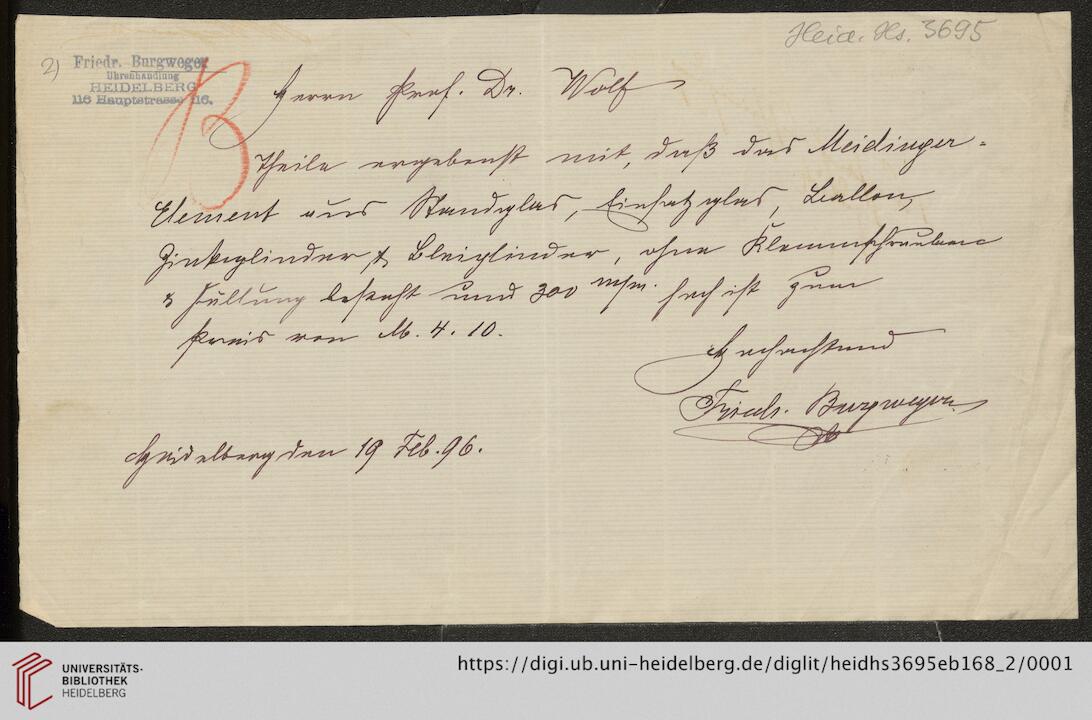 Heid. Hs. 3695
2)
Friedr. Burgweger
Uhrenhandlung
HEIDELBERG
116 Hauptstrasse 116.
B
Herrn Prof. Dr. Wolf
Theile ergebenst mit, daß das Meidinger-
Element aus Standglas, Einsatzglas, Ballon,
Zinkcylinder, & Bleicylinder, ohne Klemmschrauben
& Füllung besteht und 300 m/m. hoch ist zum
Preis von M. 4. 10.
Hochachtend
Friedr. Burgweger
Heidelberg den 19 Feb. 96.
UNIVERSITÄTS-
BIBLIOTHEK
HEIDELBERG
https://digi.ub.uni-heidelberg.de/diglit/heidhs3695eb168_2/0001